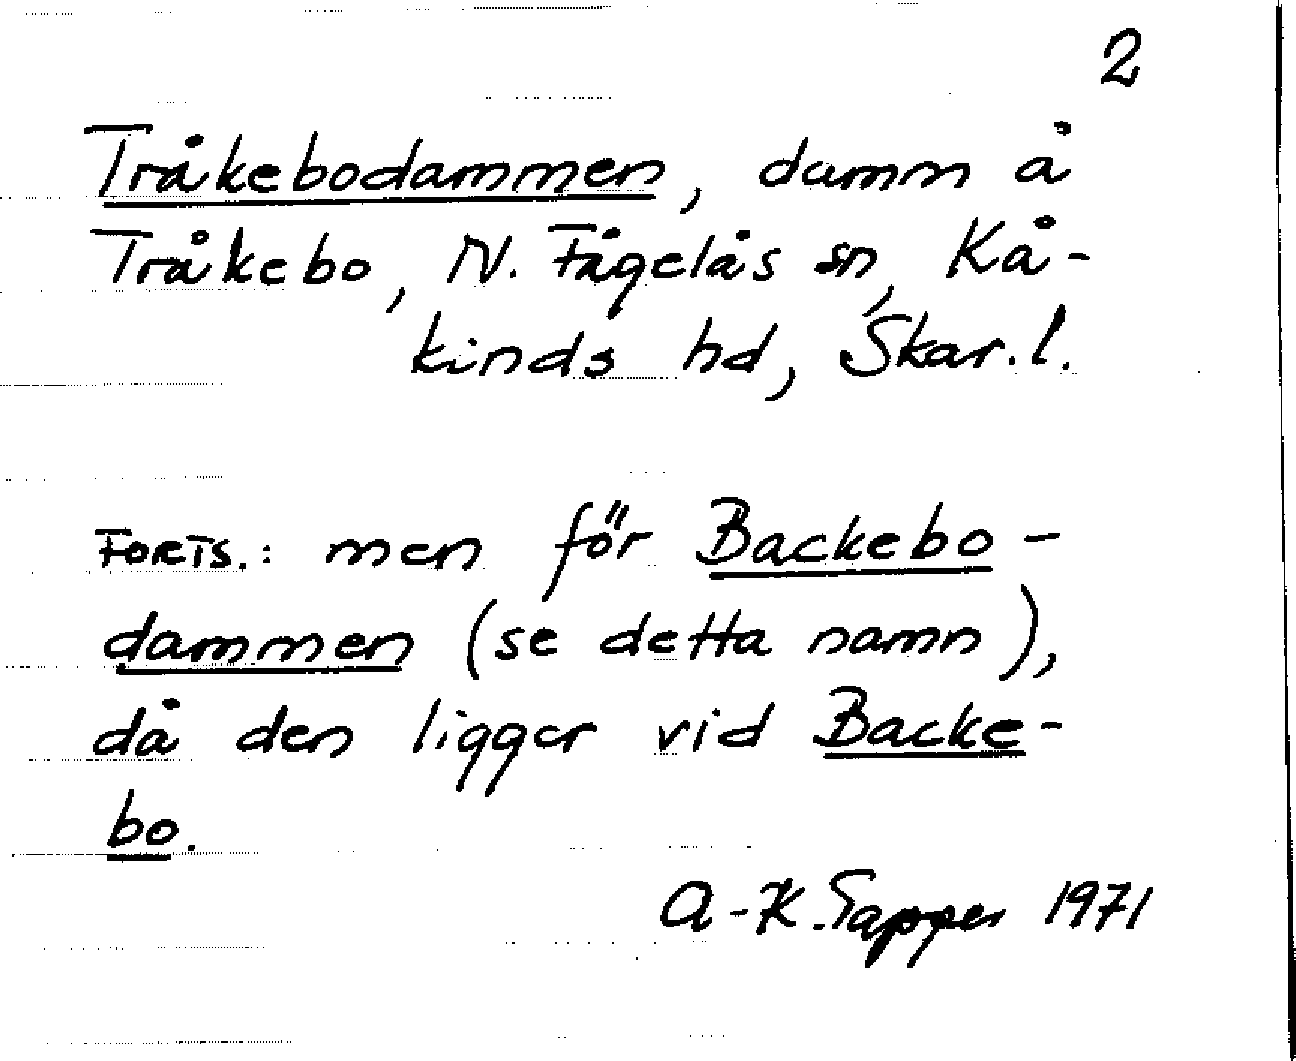 2
Tråkebodammen, damm å
Tråkebo, N. Fågelås sn, Kå-
kinds hd, Skar. l.
FORTS.: men för Backebo-
dammen (se detta namn),
då den ligger vid Backe-
bo.
A-K. Tapper 1971